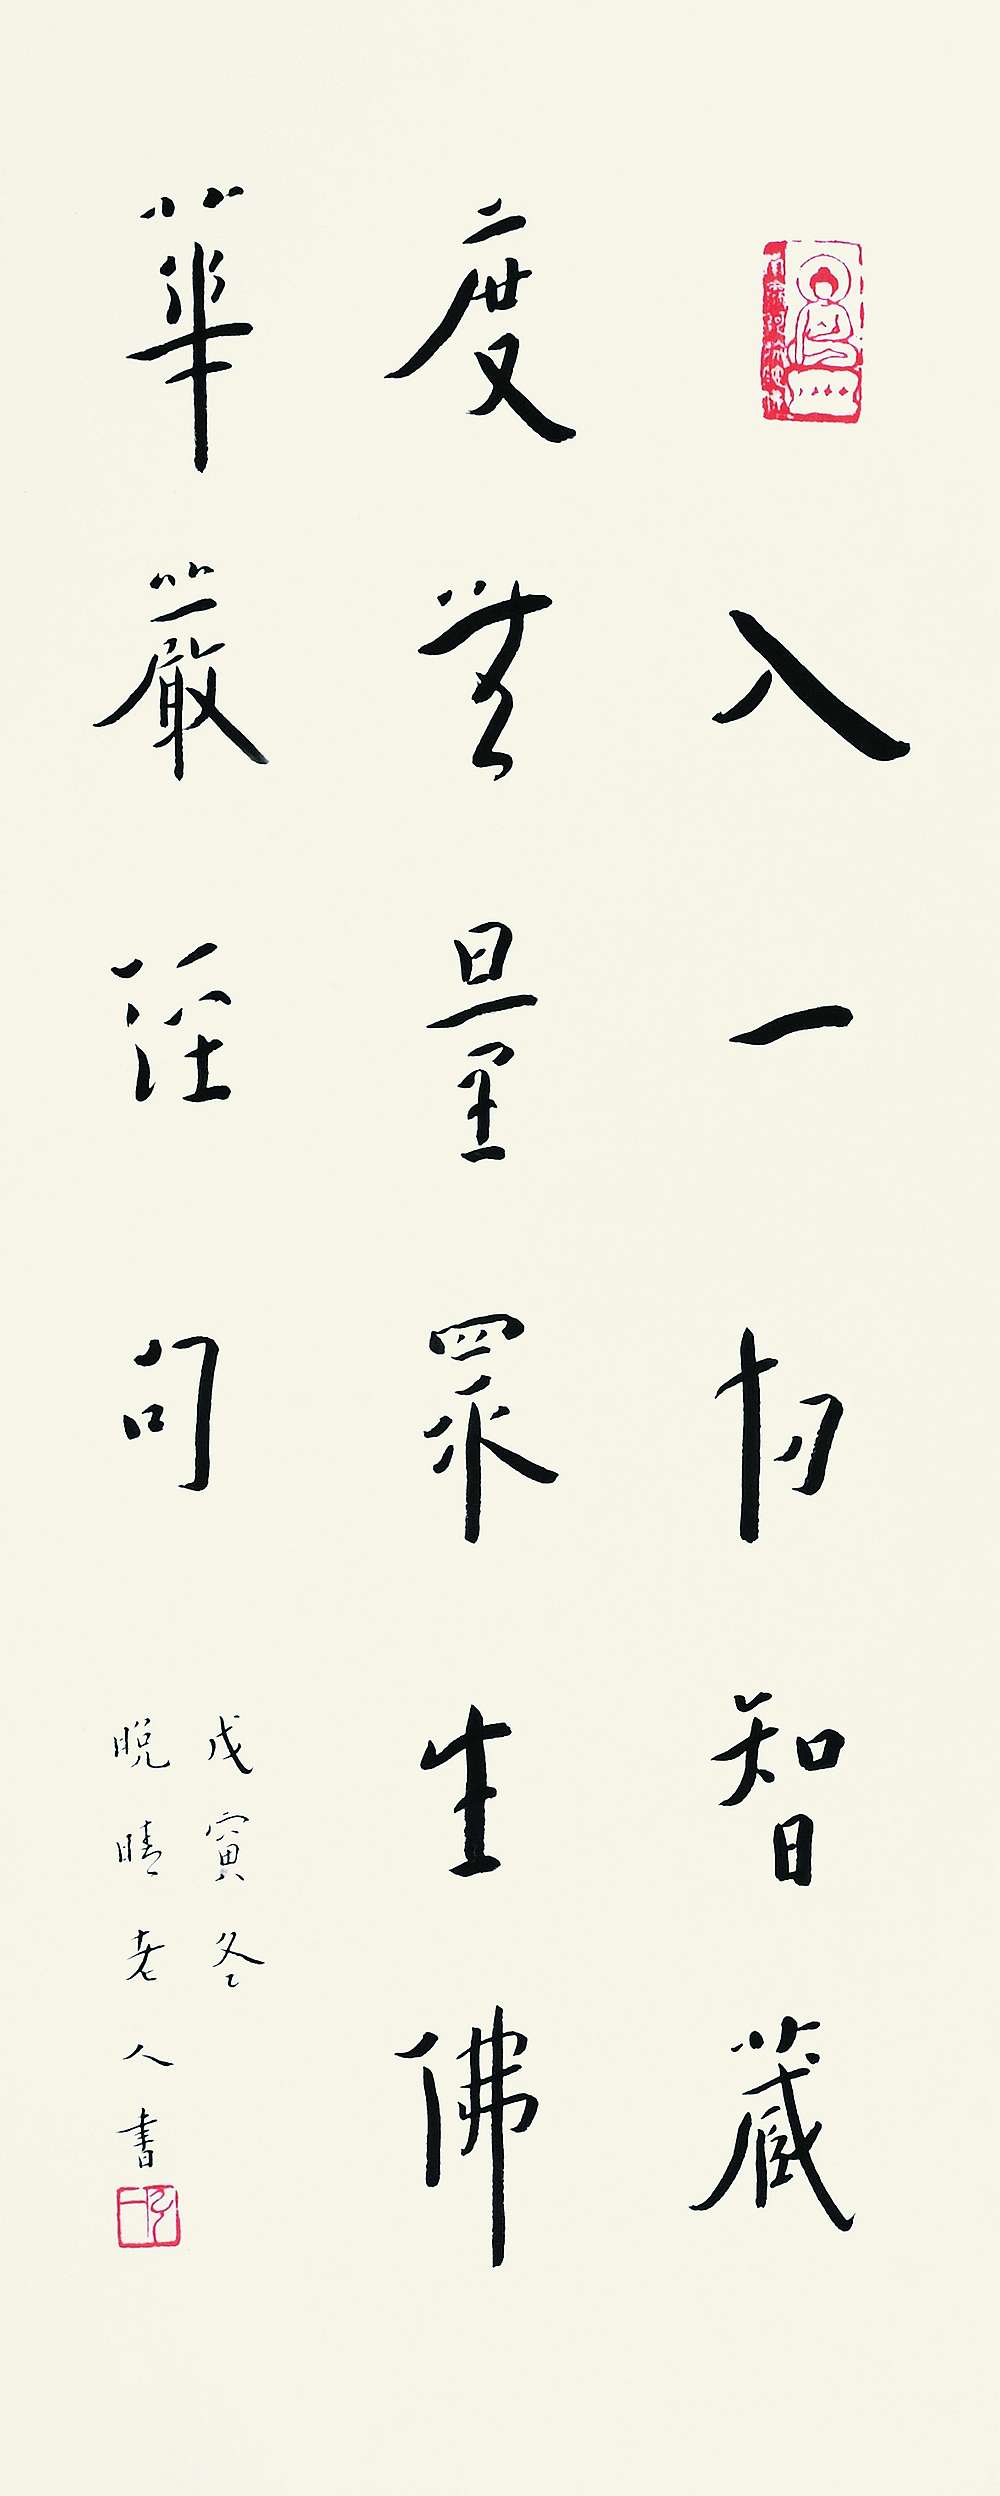 入一切智藏
度無量眾生佛
華嚴經句
戊寅冬
晚晴老人書